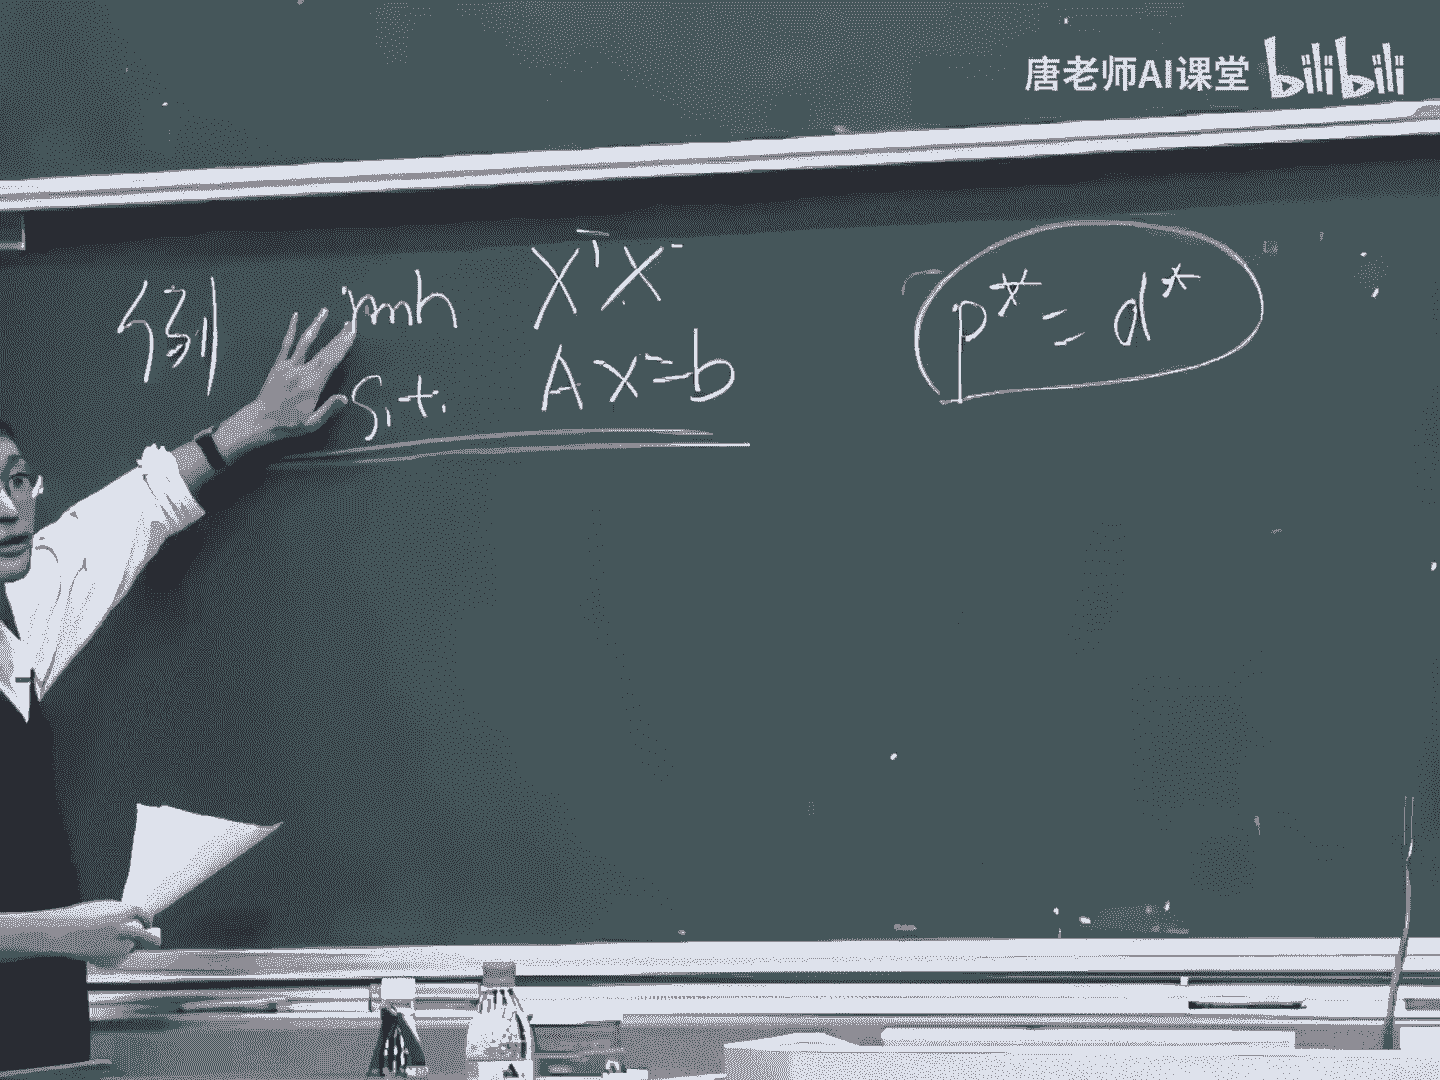 唐老师AI课堂 bilibili
例 min XᵀX
s.t. Ax=b
p* = d*